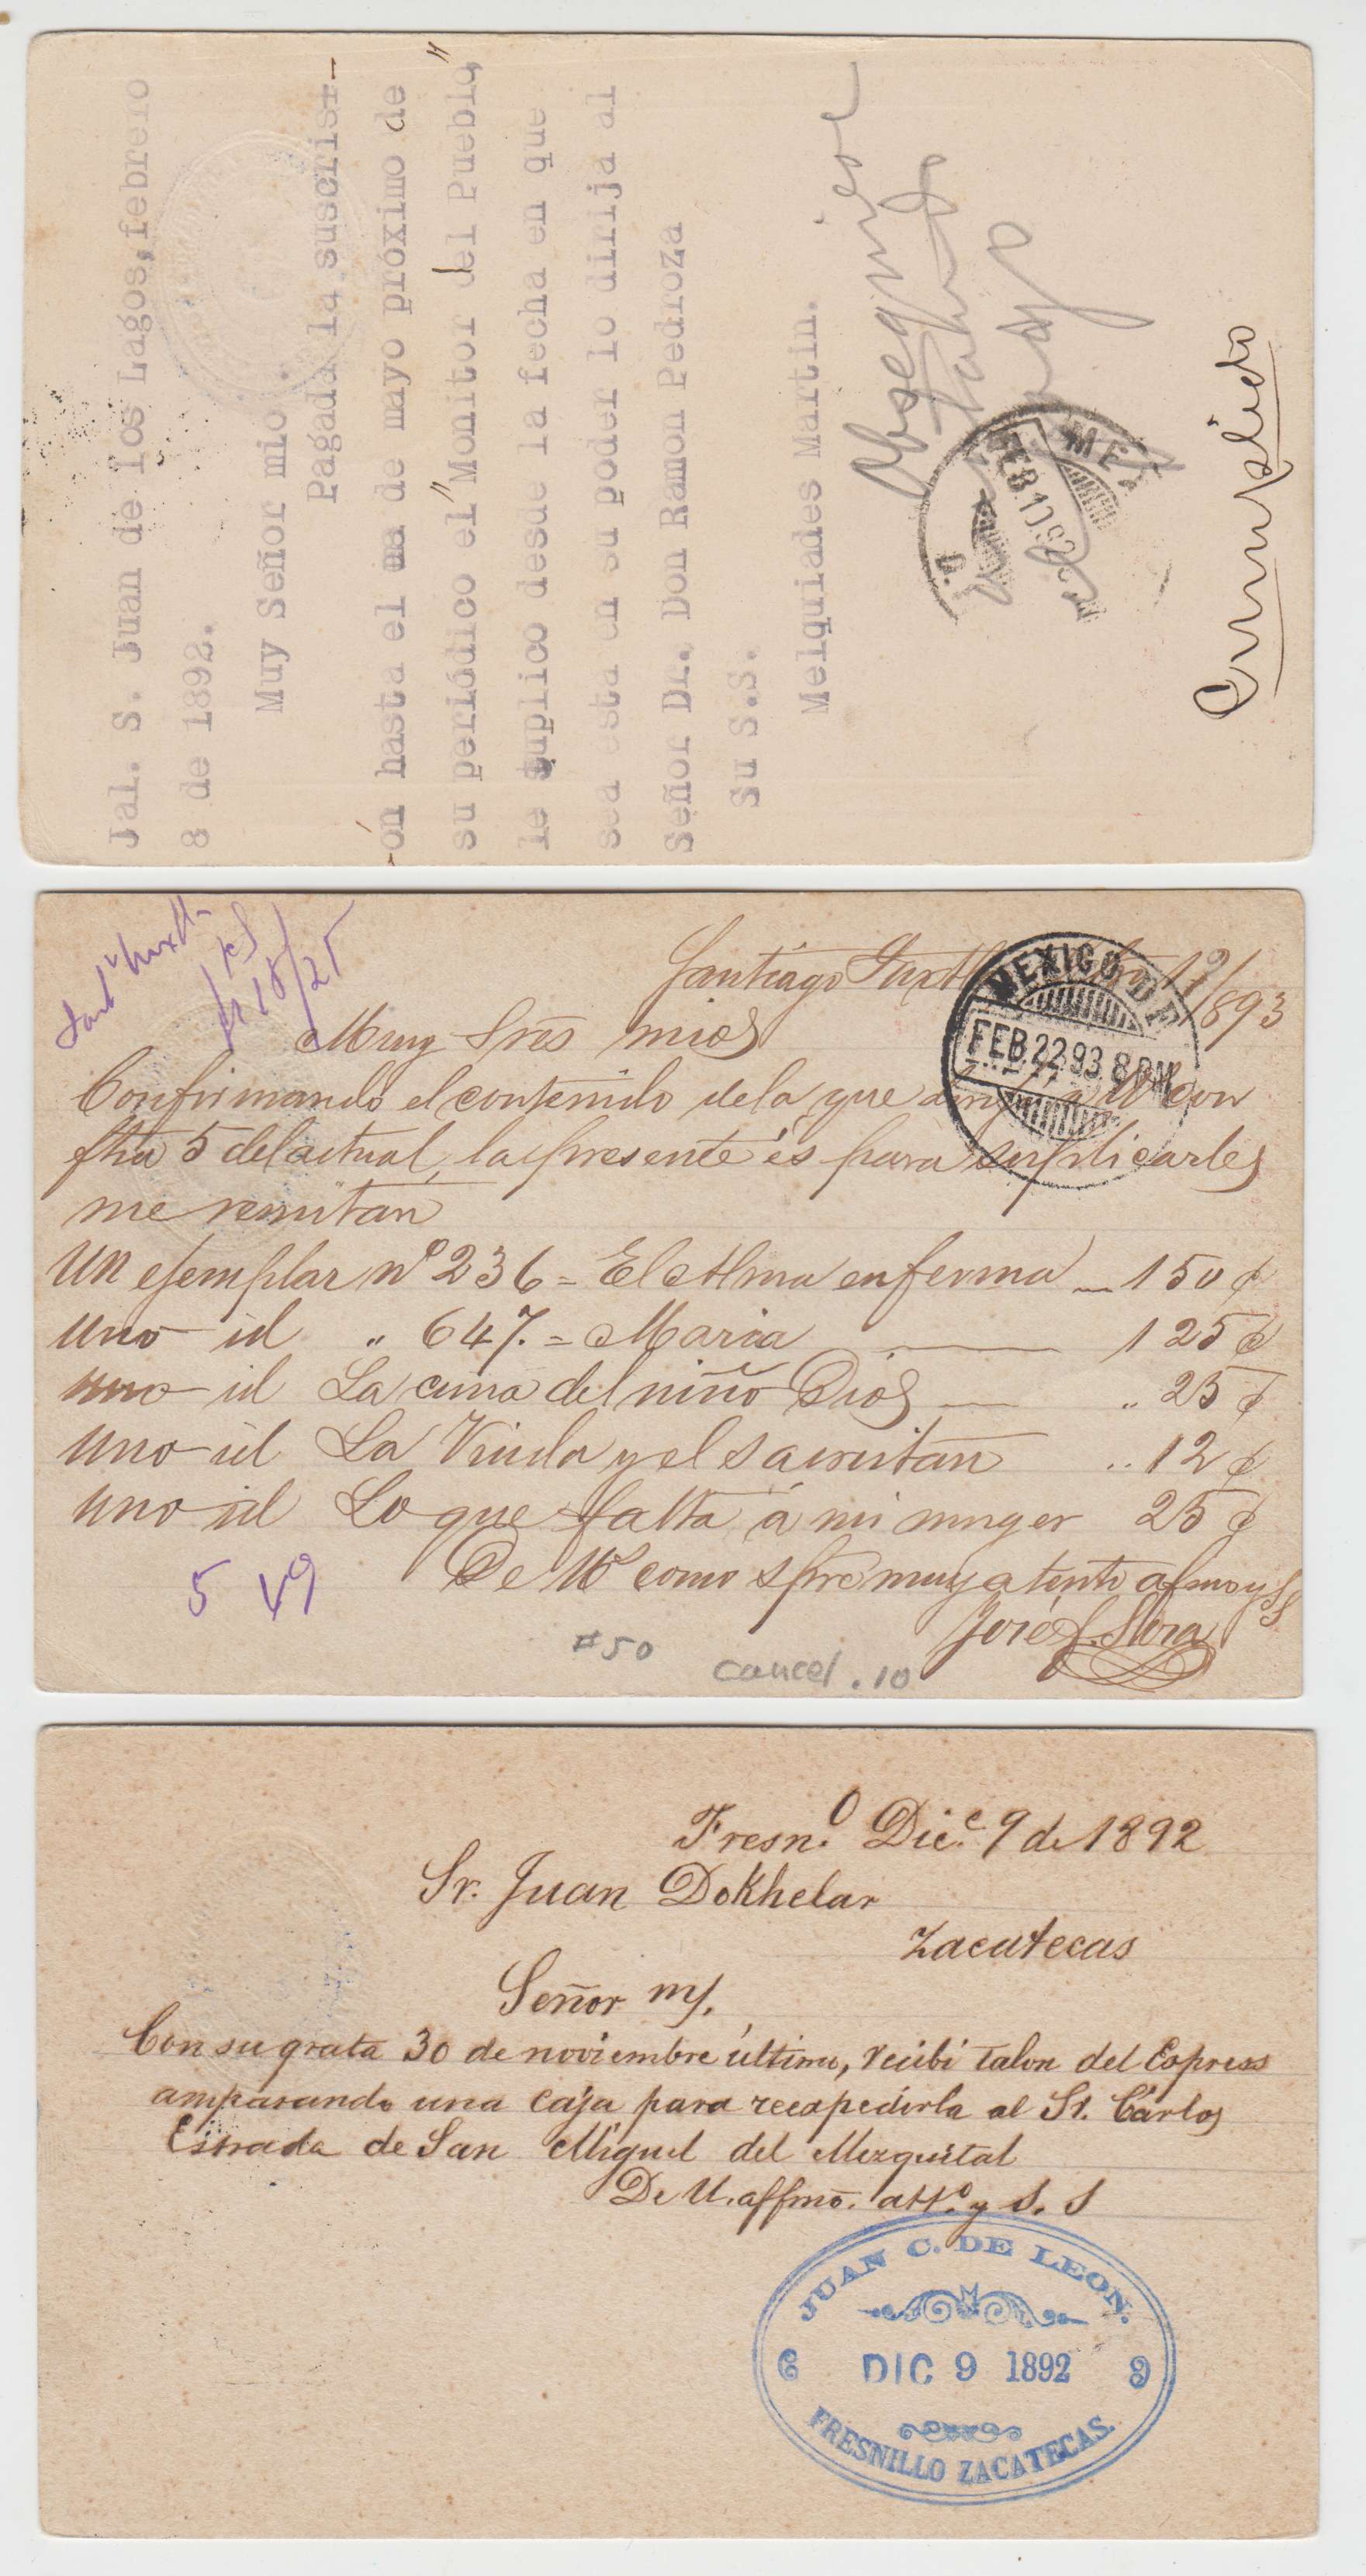 Jal. S. Juan de los Lagos, febrero
8 de 1892.
Muy Señor mio.
Pagada la suscri
ón hasta el de mayo próximo de
su periódico el "Monitor del Pueblo,"
le suplico desde la fecha en que
sea esta en su poder lo dirija al
Señor Dr. Don Ramon Pedroza
Su S.S.
Melquiades Martin.
MEX
FEB 10 92
D.
Cumplido
Santiago 19/893
MEXICO D F
FEB 22 93 8 PM
Muy Sres mios
Confirmando el contenido de la que con
fha 5 del actual, la presente és para suplicarles
me remitan
Un ejemplar nº 236 = El Alma enferma 150 ¢
Uno id „ 647. = Maria 125 ¢
uno id La cuna del niño Dios „ 25 ¢
Uno id La Viuda y el sacristan .. 12 ¢
Uno id Lo que falta á mi muger 25 ¢
De Us como spre muy atento afmo y SS
José
5 49
#50
cancel .10
Fresn.º Dic.e 9 de 1892
Sr. Juan Dokhelar
Zacatecas
Señor m/.
Con su grata 30 de noviembre último, recibi talon del Express
amparando una caja para reexpedirla al Sr. Cárlos
Estrada de San Miguel del Mezquital
De U. affmo. att.º y S. S
JUAN C. DE LEON.
DIC 9 1892
FRESNILLO ZACATECAS.